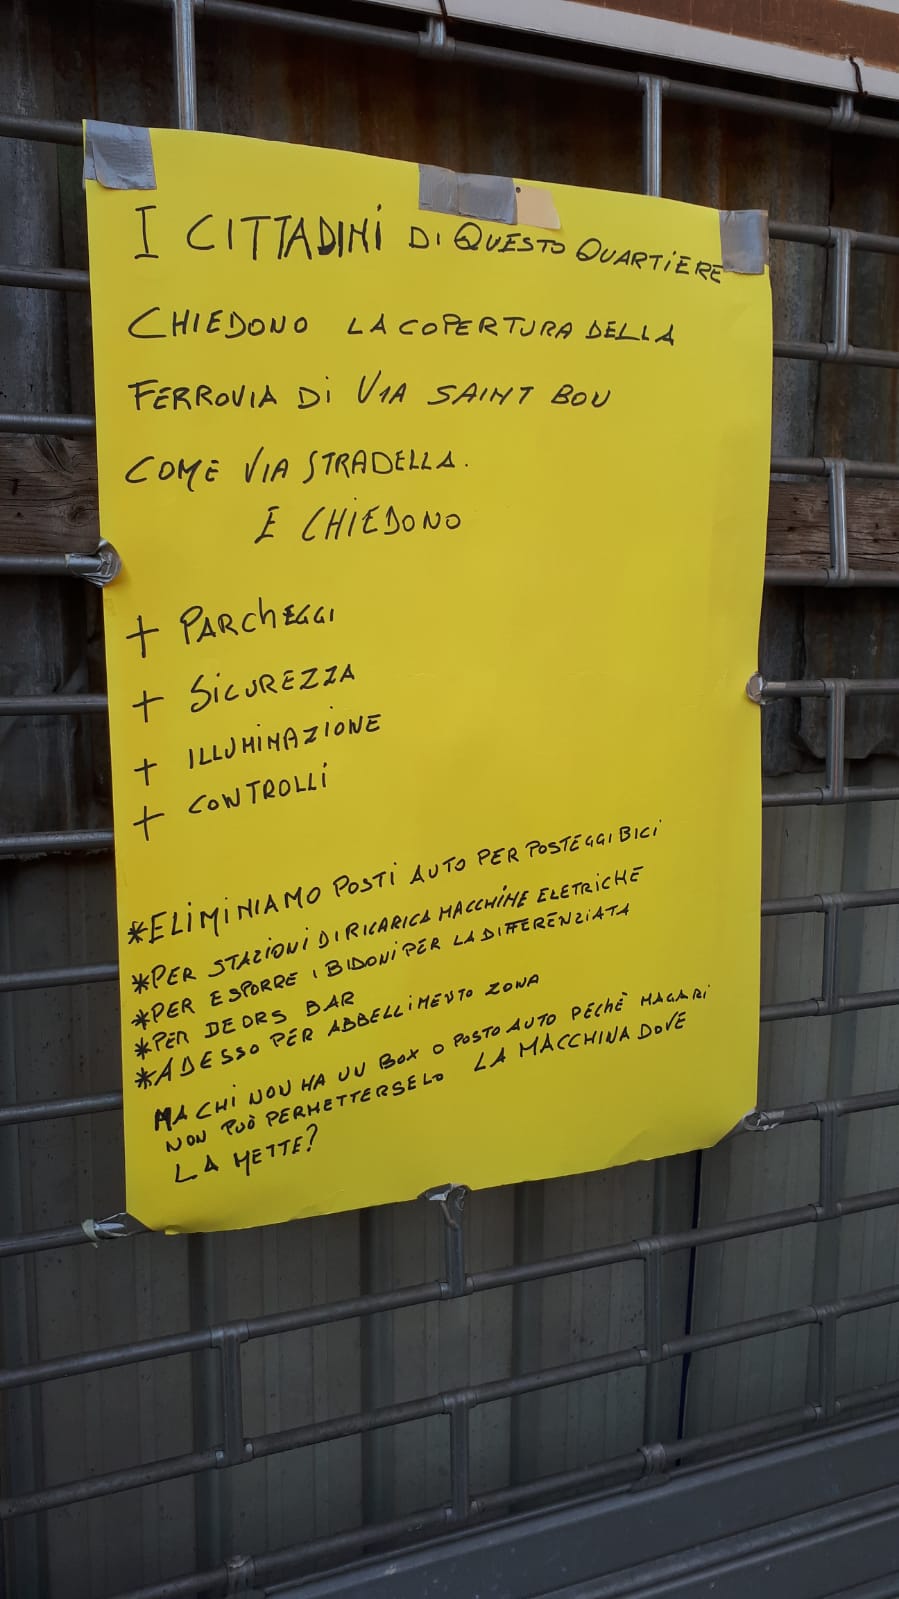 I CITTADINI DI QUESTO QUARTIERE
CHIEDONO LA COPERTURA DELLA
FERROVIA DI VIA SAINT BOU
COME VIA STRADELLA.
E CHIEDONO
+ PARCHEGGI
+ SICUREZZA
+ ILLUMINAZIONE
+ CONTROLLI
*ELIMINIAMO POSTI AUTO PER POSTEGGI BICI
*PER STAZIONI DI RICARICA MACCHINE ELETRICHE
*PER ESPORRE I BIDONI PER LA DIFFERENZIATA
*PER DEORS BAR
*ADESSO PER ABBELLIMENTO ZONA
MA CHI NON HA UN BOX O POSTO AUTO PECHÈ MAGARI
NON PUÒ PERMETTERSELO LA MACCHINA DOVE
LA METTE?